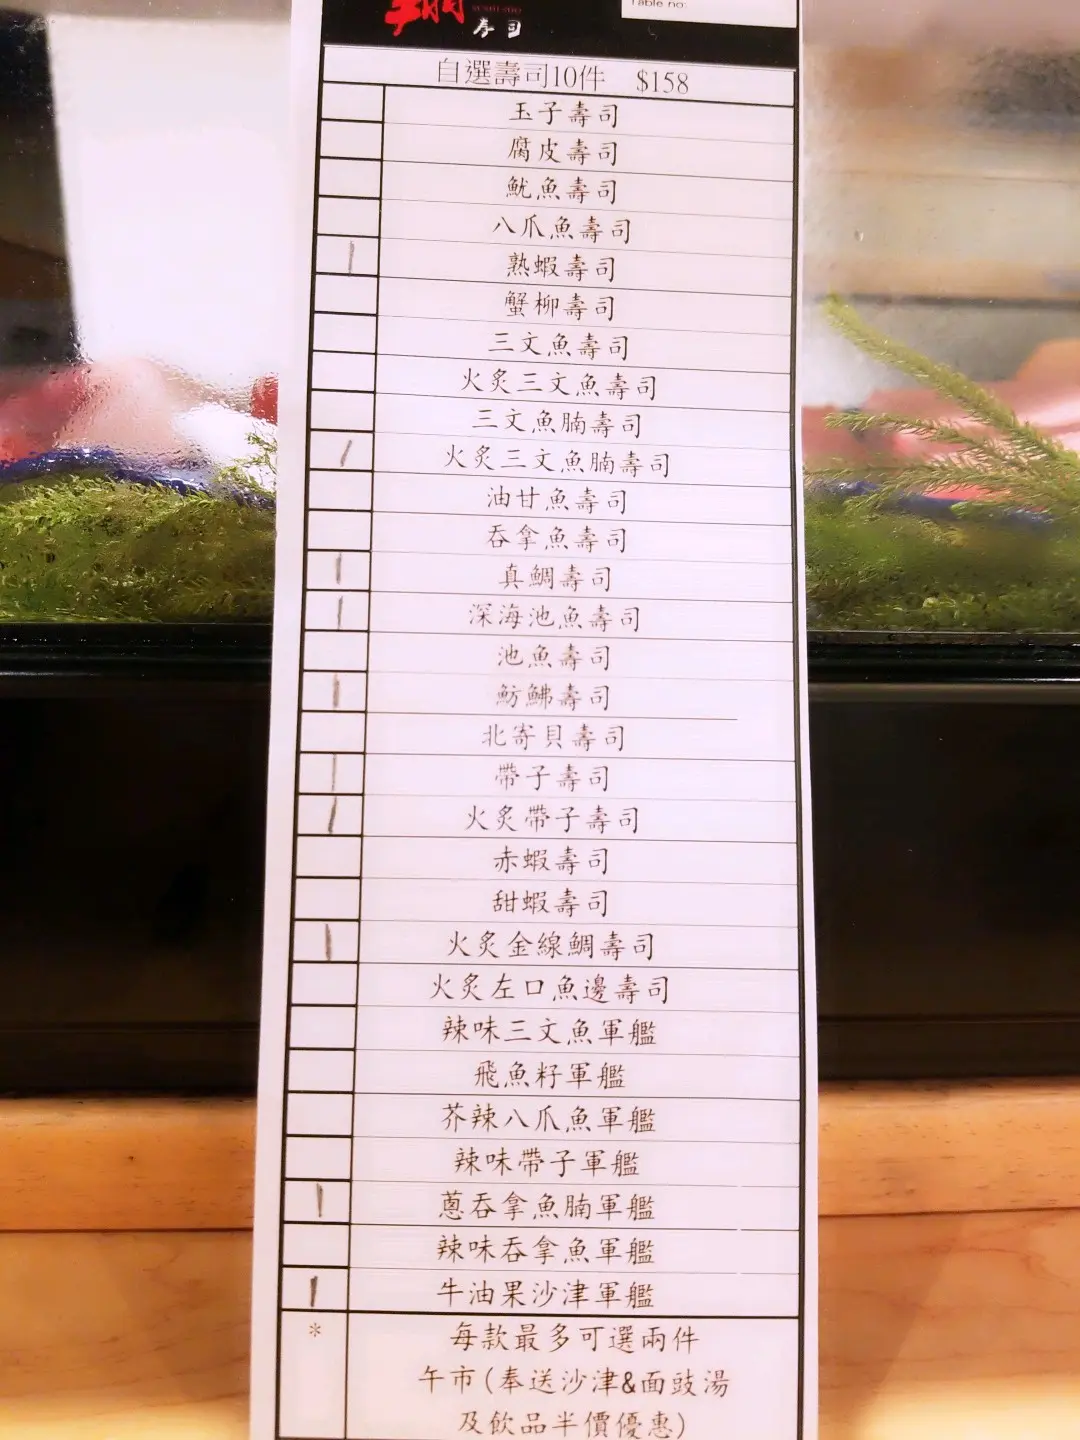 寿司
Table no:
自選壽司10件 $158
玉子壽司
腐皮壽司
魷魚壽司
八爪魚壽司
熟蝦壽司
蟹柳壽司
三文魚壽司
火炙三文魚壽司
三文魚腩壽司
火炙三文魚腩壽司
油甘魚壽司
吞拿魚壽司
真鯛壽司
深海池魚壽司
池魚壽司
魴鮄壽司
北寄貝壽司
帶子壽司
火炙帶子壽司
赤蝦壽司
甜蝦壽司
火炙金線鯛壽司
火炙左口魚邊壽司
辣味三文魚軍艦
飛魚籽軍艦
芥辣八爪魚軍艦
辣味帶子軍艦
蔥吞拿魚腩軍艦
辣味吞拿魚軍艦
牛油果沙津軍艦
* 每款最多可選兩件
午市(奉送沙津&面豉湯
及飲品半價優惠)